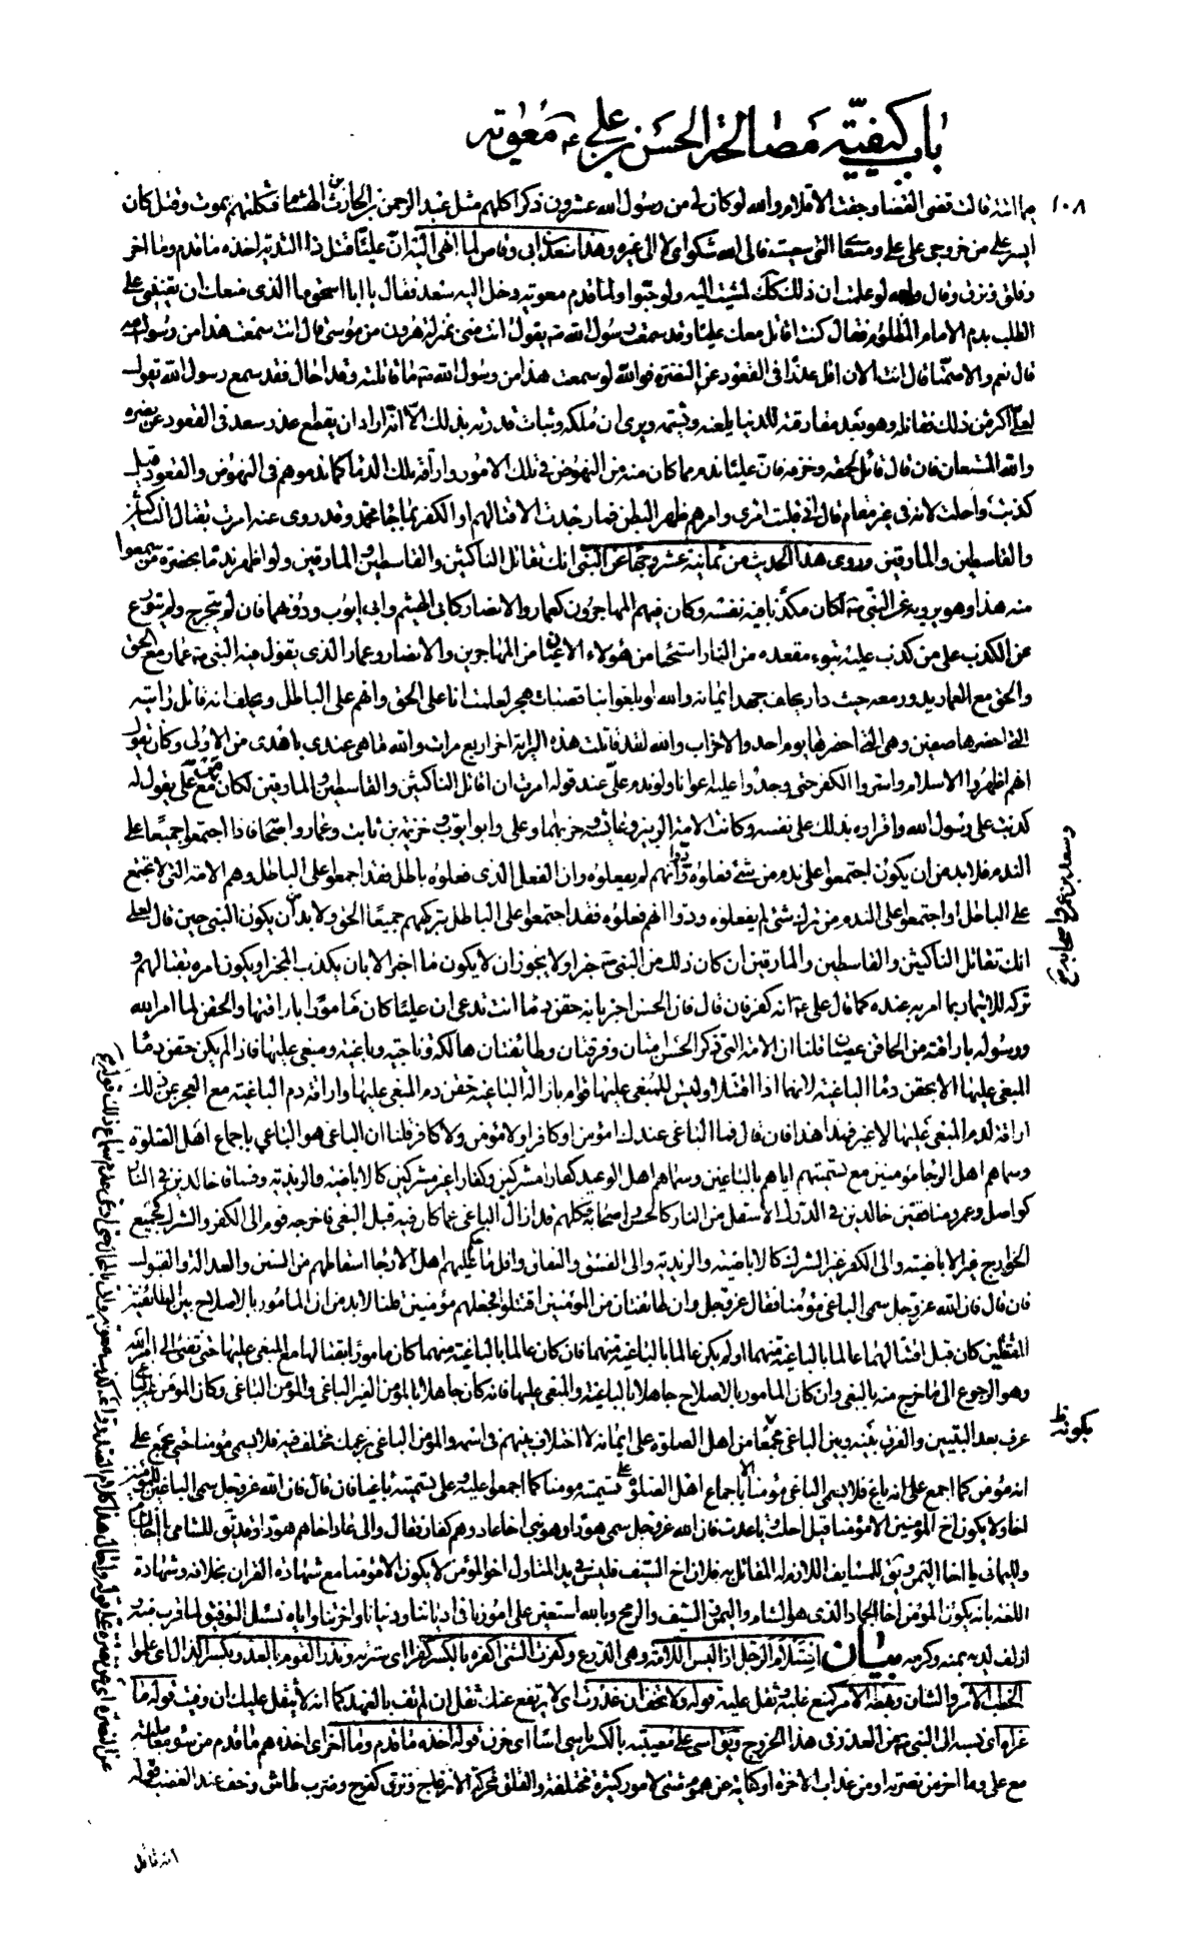 باب كيفيّة مصالحة الحسن بن علي ع معوية
١٠٨
قالت قضى القضا وجفت الاقلام والله لو كان لي من رسول الله عشرون ذكرا كلهم مثل عبد الرحمن بن الحارث بن هشام فثكلتهم بموت وقتل كان
ايسر علي من خروجي على علي ومسعاي التي سعيت فالى الله شكواي لا الى غيره وهذا سعد بن ابي وقاص لما انهي اليه ان عليّا قتل ذا الثدية اخذه ما قدم وما اخر
وقلق ونزق وقال والله لو علمت ان ذلك كذلك لمشيت اليه ولو حبوا ولما قدم معوية دخل اليه سعد فقال يا ابا اسحق ما الذي منعك ان تعينني على
الطلب بدم الامام المظلوم فقال كنت اقاتل معك عليّا وقد سمعت رسول الله ص يقول انت مني بمنزلة هرون من موسى قال انت سمعت هذا من رسول الله
قال نعم والا صمتا قال انت الان اقل عذرا في القعود عن النصرة فوالله لو سمعت هذا من رسول الله ص ما قاتلته وقد احال فقد سمع رسول الله يقول
لعلي اكثر من ذلك فقاتله وهو بعد مفارقته للدنيا يلعنه ويشتمه ويرى ان ملكه وثبات قدرته بذلك الا انه اراد ان يقطع عذر سعد في القعود عن نصره
والله المستعان فان قال قائل لحمقه وخرقه فان عليّا ندم مما كان منه من النهوض في تلك الامور واراقة تلك الدما كما ندموا هم في النهوض والقعود قيل
كذبت واحلت لانه في غير مقام قال اني قلبت امري وامرهم ظهرا لبطن فما وجدت الا قتالهم او الكفر بما جا محمد ص وقد روى عنه امرت بقتال الناكثين
والقاسطين والمارقين وروى هذا الحديث من ثمانية عشر وجها عن النبي ص انك تقاتل الناكثين والقاسطين والمارقين ولو اظهر ندما بحضرة من سمعوا
منه هذا وهو يرويه عن النبي ص لكان مكذبا فيه نفسه وكان فيهم المهاجرون كعمار والانصار كابي الهيثم وابي ايوب ودونهما فان لم يتحرج ولم يتورع
عن الكذب على من كذب عليه تبوء مقعده من النار استحيا من هؤلاء الاعيان من المهاجرين والانصار وعمار الذي يقول فيه النبي ص عمار مع الحق
والحق مع عمار يدور معه حيث دار يحلف جهد ايمانه والله لو بلغوا بنا قصبات هجر لعلمت انا على الحق وانهم على الباطل ويحلف انه قاتل رايته
التي احضرها صفين وهي التي احضرها يوم احد والاحزاب والله لقد قاتلت هذه الراية اخر اربع مرات والله ما هي عندي باهدى من الاولى وكان يقول
انهم اظهروا الاسلام واسروا الكفر حتى وجدوا عليه اعوانا ولو ندم علي عند قوله امرت ان اقاتل الناكثين والقاسطين والمارقين لكان مع علي من يقول له
كذبت على رسول الله واقراره بذلك على نفسه وكانت الامة الزبير وعائشة وحزبهما وعلي وابو ايوب وخزيمة بن ثابت وعمار واصحابه فاذا اجتمعوا جميعا على
الندم فلا بد من ان يكون اجتمعوا على ندم من شئ فعلوه ودوا انهم لم يفعلوه وان الفعل الذي فعلوه باطل فقد اجمعوا على الباطل وهم الامة التي لا تجتمع
على الباطل او اجتمعوا على الندم من ترك شئ لم يفعلوه ودوا انهم فعلوه فقد اجتمعوا على الباطل بتركهم جميعا الحق ولا بد من ان يكون النبي حين قال لعلي
انك تقاتل الناكثين والقاسطين والمارقين ان كان ذلك من النبي ص خبرا ولا يجوز ان لا يكون ما اخبر الا بان يكذب المخبر او يكون امره بقتالهم و
تركه للائتمار بما امر به عنده كما قال علي ع انه كفر فان قال فان الحسن اخبر بانه حقن دما انت تدعي ان عليّا كان مامورا باراقتها والحقن لما امر الله
ورسوله باراقته من الحاقن عصيان قلنا ان الامة التي ذكر الحسن امتان وفرقتان وطائفتان هالكة وناجية وباغية ومبغي عليها فاذا لم يكن حقن دما
المبغي عليها الا بحقن دما الباغية لانهما اذا اقتتلا وليس للمبغي عليها قوام بازالة الباغية حقن دم المبغي عليها واراقة دم الباغية مع العجز عن ذلك
اراقة لدم المبغي عليها لا غير فهذا هذا فان قال فما الباغي عندك امؤمن او كافر او لا مؤمن ولا كافر قلنا ان الباغي هو الباغي باجماع اهل الصلوة
وسماهم اهل الارجا مؤمنين مع تسميتهم اياهم بالباغين وسماهم اهل الوعيد كفارا مشركين وكفارا غير مشركين كالاباضية والزيدية وفساقا خالدين في النار
كواصل وعمرو ومنافقين خالدين في الدرك الاسفل من النار كالحسن واصحابه فكلهم قد ازال الباغي عما كان فيه قبل البغي فاخرجه قوم الى الكفر والشرك كجميع
الخوارج غير الاباضية والى الكفر غير الشرك كالاباضية والزيدية والى الفسق والنفاق واقل ما حكم عليهم اهل الارجا اسقاطهم من السنن والعدالة والقبول
فان قال فان الله عز وجل سمى الباغي مؤمنا فقال عز وجل وان طائفتان من المؤمنين اقتتلوا فجعلهم مؤمنين قلنا لا بد من ان المامور بالاصلاح بين الطائفتين
المقتتلتين كان قبل اقتتالهما عالما بالباغية منهما او لم يكن عالما بالباغية منهما فان كان عالما بالباغية منهما كان مامورا بقتالها مع المبغي عليها حتى تفئ الى امر الله
وهو الرجوع الى ما خرج منه بالبغي وان كان المامور بالاصلاح جاهلا بالباغية والمبغي عليها فانه كان جاهلا بالمؤمن الغير الباغي والمؤمن الباغي وكان المؤمن غير الباغي
عرف بعد التبيين والفرق بينه وبين الباغي مجمعا من اهل الصلوة على ايمانه لا اختلاف بينهم في اسمه والمؤمن الباغي بزعمك مختلف فيه فلا يسمى مؤمنا حتى يجمع على
انه مؤمن كما اجمع على انه باغ فلا يسمى الباغي مؤمنا الا باجماع اهل الصلوة على تسميته مومنا كما اجمعوا عليه وعلى تسميته باغيا فان قال فان الله عز وجل سمى الباغي للمؤمنين
اخا ولا يكون اخ المؤمنين الا مؤمنا قيل احلت وباعدت فان الله عز وجل سمى هودا وهو نبي اخا عاد وهم كفار فقال والى عاد اخاهم هودا وقد يق للشامي يا اخا الشام
ولليماني يا اخا اليمن ويق للمسايف اللازم له المقاتل به فلان اخ السيف فليس في يد المتاول اخو المؤمن لا يكون الا مؤمنا مع شهادة القران بخلافه وشهادة
اللغة بانه يكون المؤمن اخا الجماد الذي هو الشام واليمن والسيف والرمح وبالله استعين على امورنا في ادياننا ودنيانا واخرتنا واياه نسئل التوفيق لما قرب منه و
ازلف لديه بمنه وكرمه بيان استلام الرجل اذا لبس اللامة وهي الدرع وكفرت الشئ اكفره بالكسر كفرا اي سترته ونذر القوم بالعدو بكسر الذال اي علموا
الخطب الامر والشان وبهظه الامر كمنع غلبه وثقل عليه قوله ولا تخف ان عذرت اي لا يرتفع عنك ثقل ان لم تف بالعهد كما انه لا يثقل عليك ان وفيت قوله ما
عزاه اي نسبه الى النبي ص من العذر في هذا الخروج ويق اسي على مصيبته بالكسر ياسى اسا اي حزن قوله اخذه ما قدم وما اخر اي اخذه هم ما قدم من سوء معاملته
مع علي وما اخر من نصرته او من عذاب الاخرة او كناية عن هموم شتى لامور كثيرة مختلفة والقلق محركة الانزعاج ونزق كفرح وضرب طاش وخف عند الغضب قوله
وسعد بن عمر واصحابه خ
يكونه ظ
انه قايل